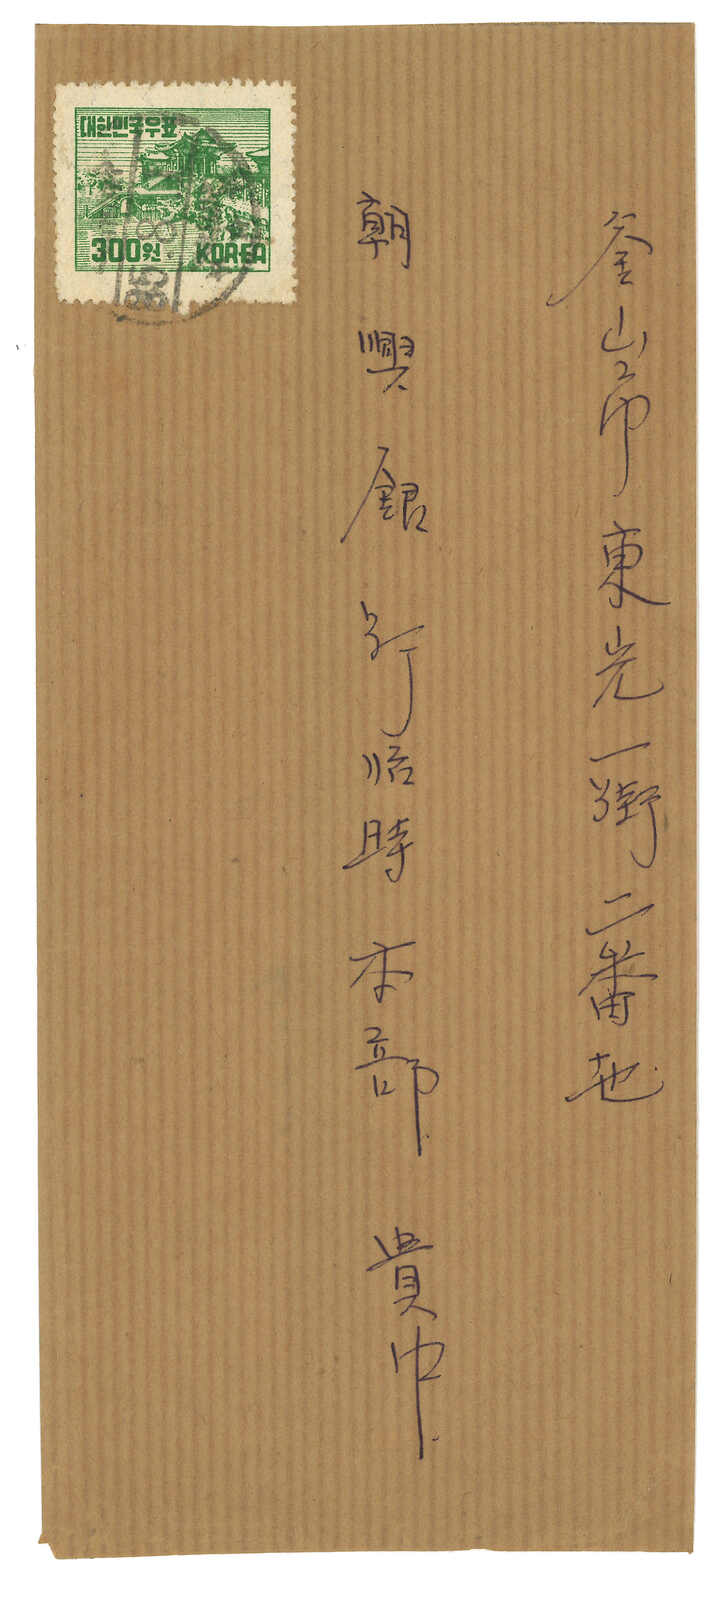 釜山市東光一街二番地
朝興銀行臨時本部 貴中
대한민국우표
300원 KOREA